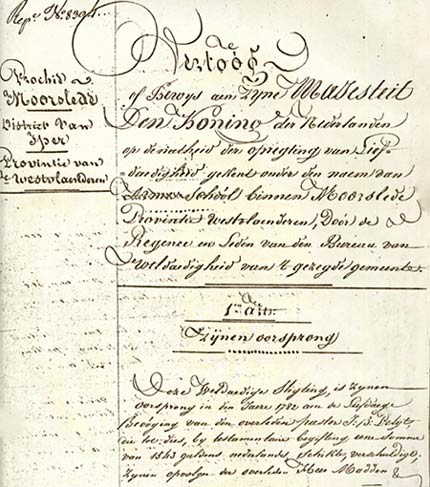 Rep. No. 8394
Prochie
Moorslede
District van
Iper
Provintie van
Westvlaenderen
Vertoog
of Bewys aen Zyne Majesteit
Den Koning der Nederlanden
op de nutheid der opregting van Lief-
daedigheid gekent onder den naem van
Armen School binnen Moorslede
Provintie Westvlaenderen, Door de
Regence en Leden van den Bureau van
Weldaedigheid van 't gezeyde gemeente.
1en Art.
Zynen oorsprong
Deze Weldaedige Stigting, is zynen
oorsprong in den Jaere 1782 aen de Liefdaege
van den overleden pastor J: B:
die by testamentaire begifting eene somme
van 1543 guldens nederlands,
Zynen den overleden Heer Madden